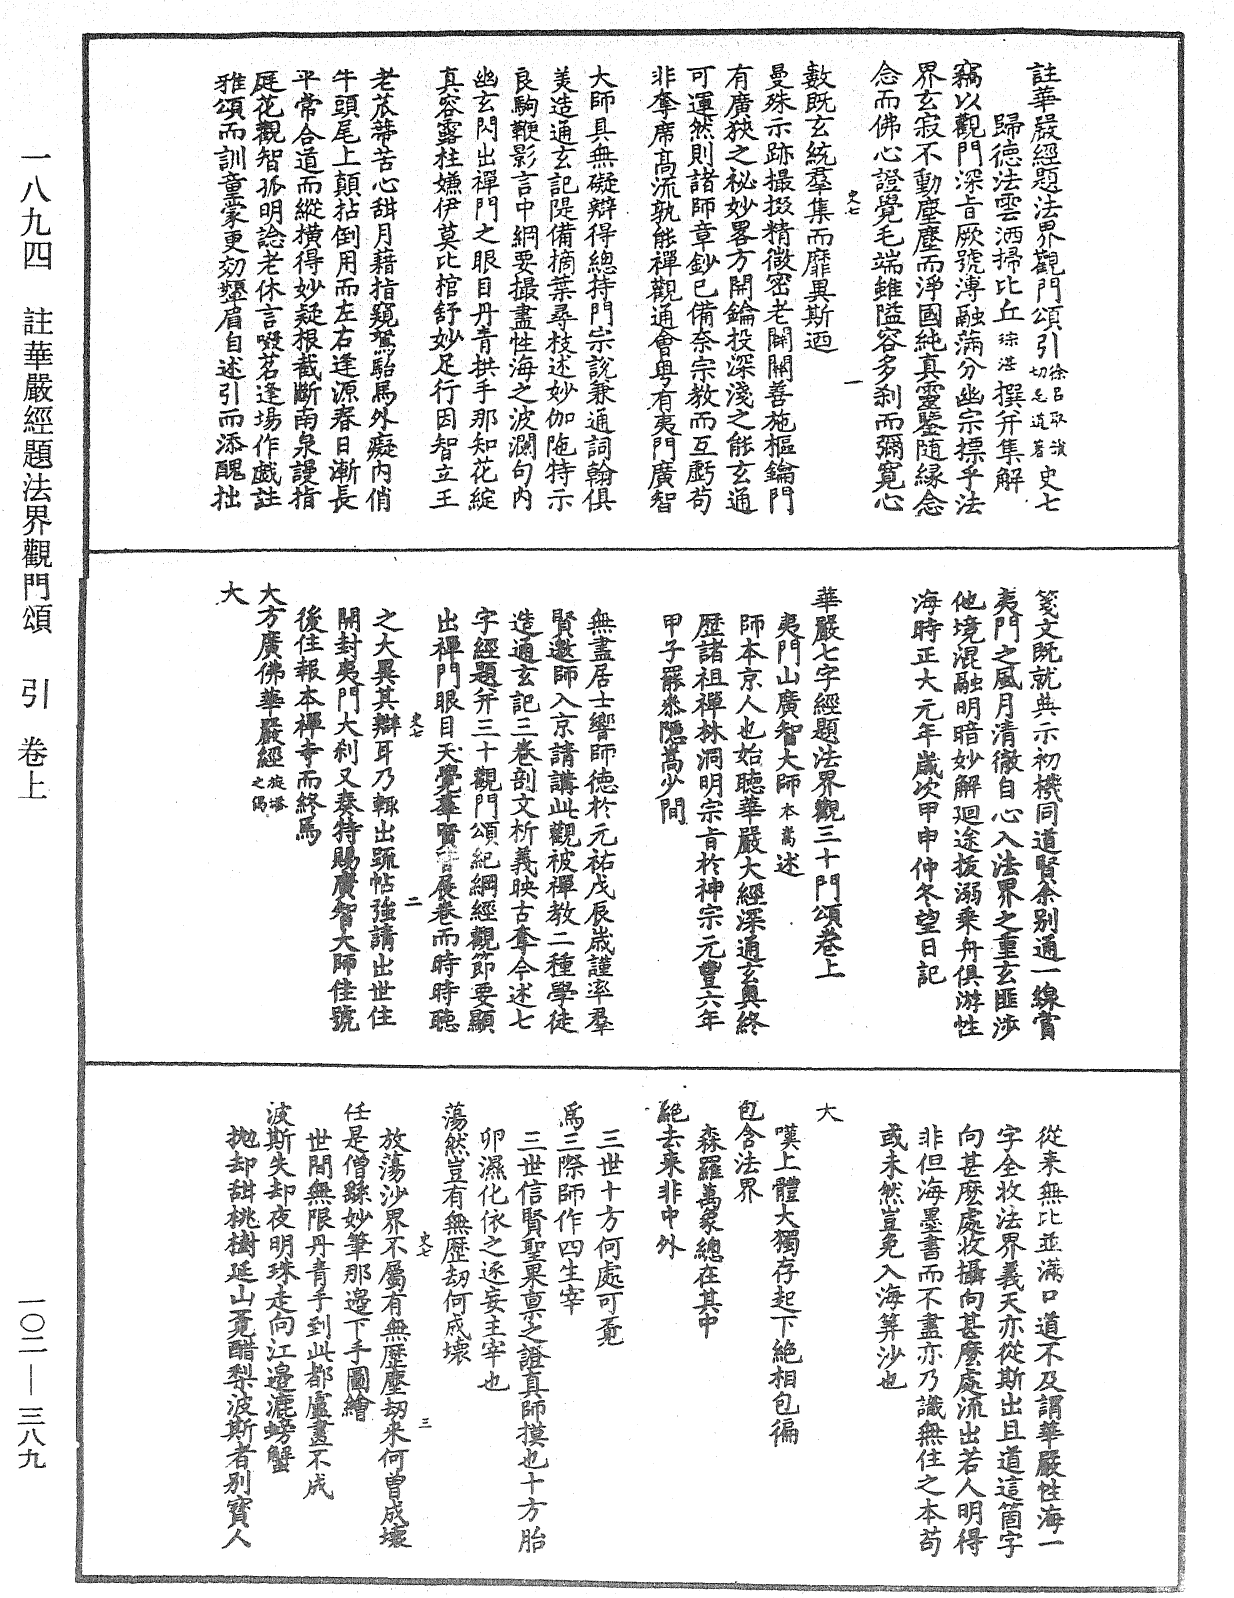 註華嚴經題法界觀門頌引 史七
歸德法雲洒掃比丘琮湛撰并集解
竊以觀門深旨厥號溥融滿分幽宗標乎法
界玄寂不動塵塵而淨國純真靈鑒隨緣念
念而佛心證覺毛端雖隘容多刹而彌寬心
數既玄統羣集而靡異斯迺
曼殊示跡撮掇精微密老闢關善施樞鑰門
有廣狹之祕妙畧方開鑰投深淺之能玄通
可運然則諸師章鈔已備奈宗教而互虧苟
非奪席高流孰能禪觀通會粵有夷門廣智
大師具無礙辯得總持門宗說兼通詞翰俱
美造通玄記隄備摘葉尋枝述妙伽陁特示
良駒鞭影言中綱要撮盡性海之波瀾句內
幽玄閃出禪門之眼目丹青拱手那知花綻
真容露柱嫌伊莫比棺舒妙足行因智立王
老苽蔕苦心甜月藉指窺駑駘馬外癡內俏
牛頭尾上顛拈倒用而左右逢源春日漸長
平常合道而縱橫得妙疑根截斷南泉謾指
庭花觀智孤明諗老休言啜茗逢場作戲註
雅頌而訓童蒙更効顰眉自述引而添醜拙
史七
一
箋文既就典示初機同道賢余別通一線賞
夷門之風月清徹自心入法界之重玄匪涉
他境混融明暗妙解迴途拔溺乘舟俱游性
海時正大元年歲次甲申仲冬望日記
華嚴七字經題法界觀三十門頌卷上
夷門山廣智大師本嵩述
師本京人也始聽華嚴大經深通玄奧終
歷諸祖禪林洞明宗旨於神宗元豐六年
甲子罷叅隱嵩少間
無盡居士響師德於元祐戊辰歲謹率羣
賢邀師入京請講此觀被禪教二種學徒
造通玄記三卷剖文析義映古奪今述七
字經題并三十觀門頌紀綱經觀節要顯
出禪門眼目天覺羣賢會展卷而時時聽
之大異其辯耳乃輒出䟽帖強請出世住
開封夷門大刹又奏特賜廣智大師佳號
後住報本禪寺而終焉
大方廣佛華嚴經旋塔之偈
大
史七
二
從來無比並滿口道不及謂華嚴性海一
字全收法界義天亦從斯出且道這箇字
向甚麽處收攝向甚麽處流出若人明得
非但海墨書而不盡亦乃識無住之本苟
或未然豈免入海筭沙也
大
嘆上體大獨存起下絶相包徧
包含法界
森羅萬象總在其中
絶去來非中外
三世十方何處可覔
爲三際師作四生宰
三世信賢聖果禀之證真師摸也十方胎
卵濕化依之逐妄主宰也
蕩然豈有無歷劫何成壞
放蕩沙界不屬有無歷塵劫來何曾成壞
任是僧繇妙筆那邊下手圖繪
世間無限丹青手到此都盧畫不成
波斯失却夜明珠走向江邊漉螃蟹
抛却甜桃樹延山覔醋梨波斯者別寶人
史七
三
一八九四　註華嚴經題法界觀門頌　引　卷上
一〇二—三八九